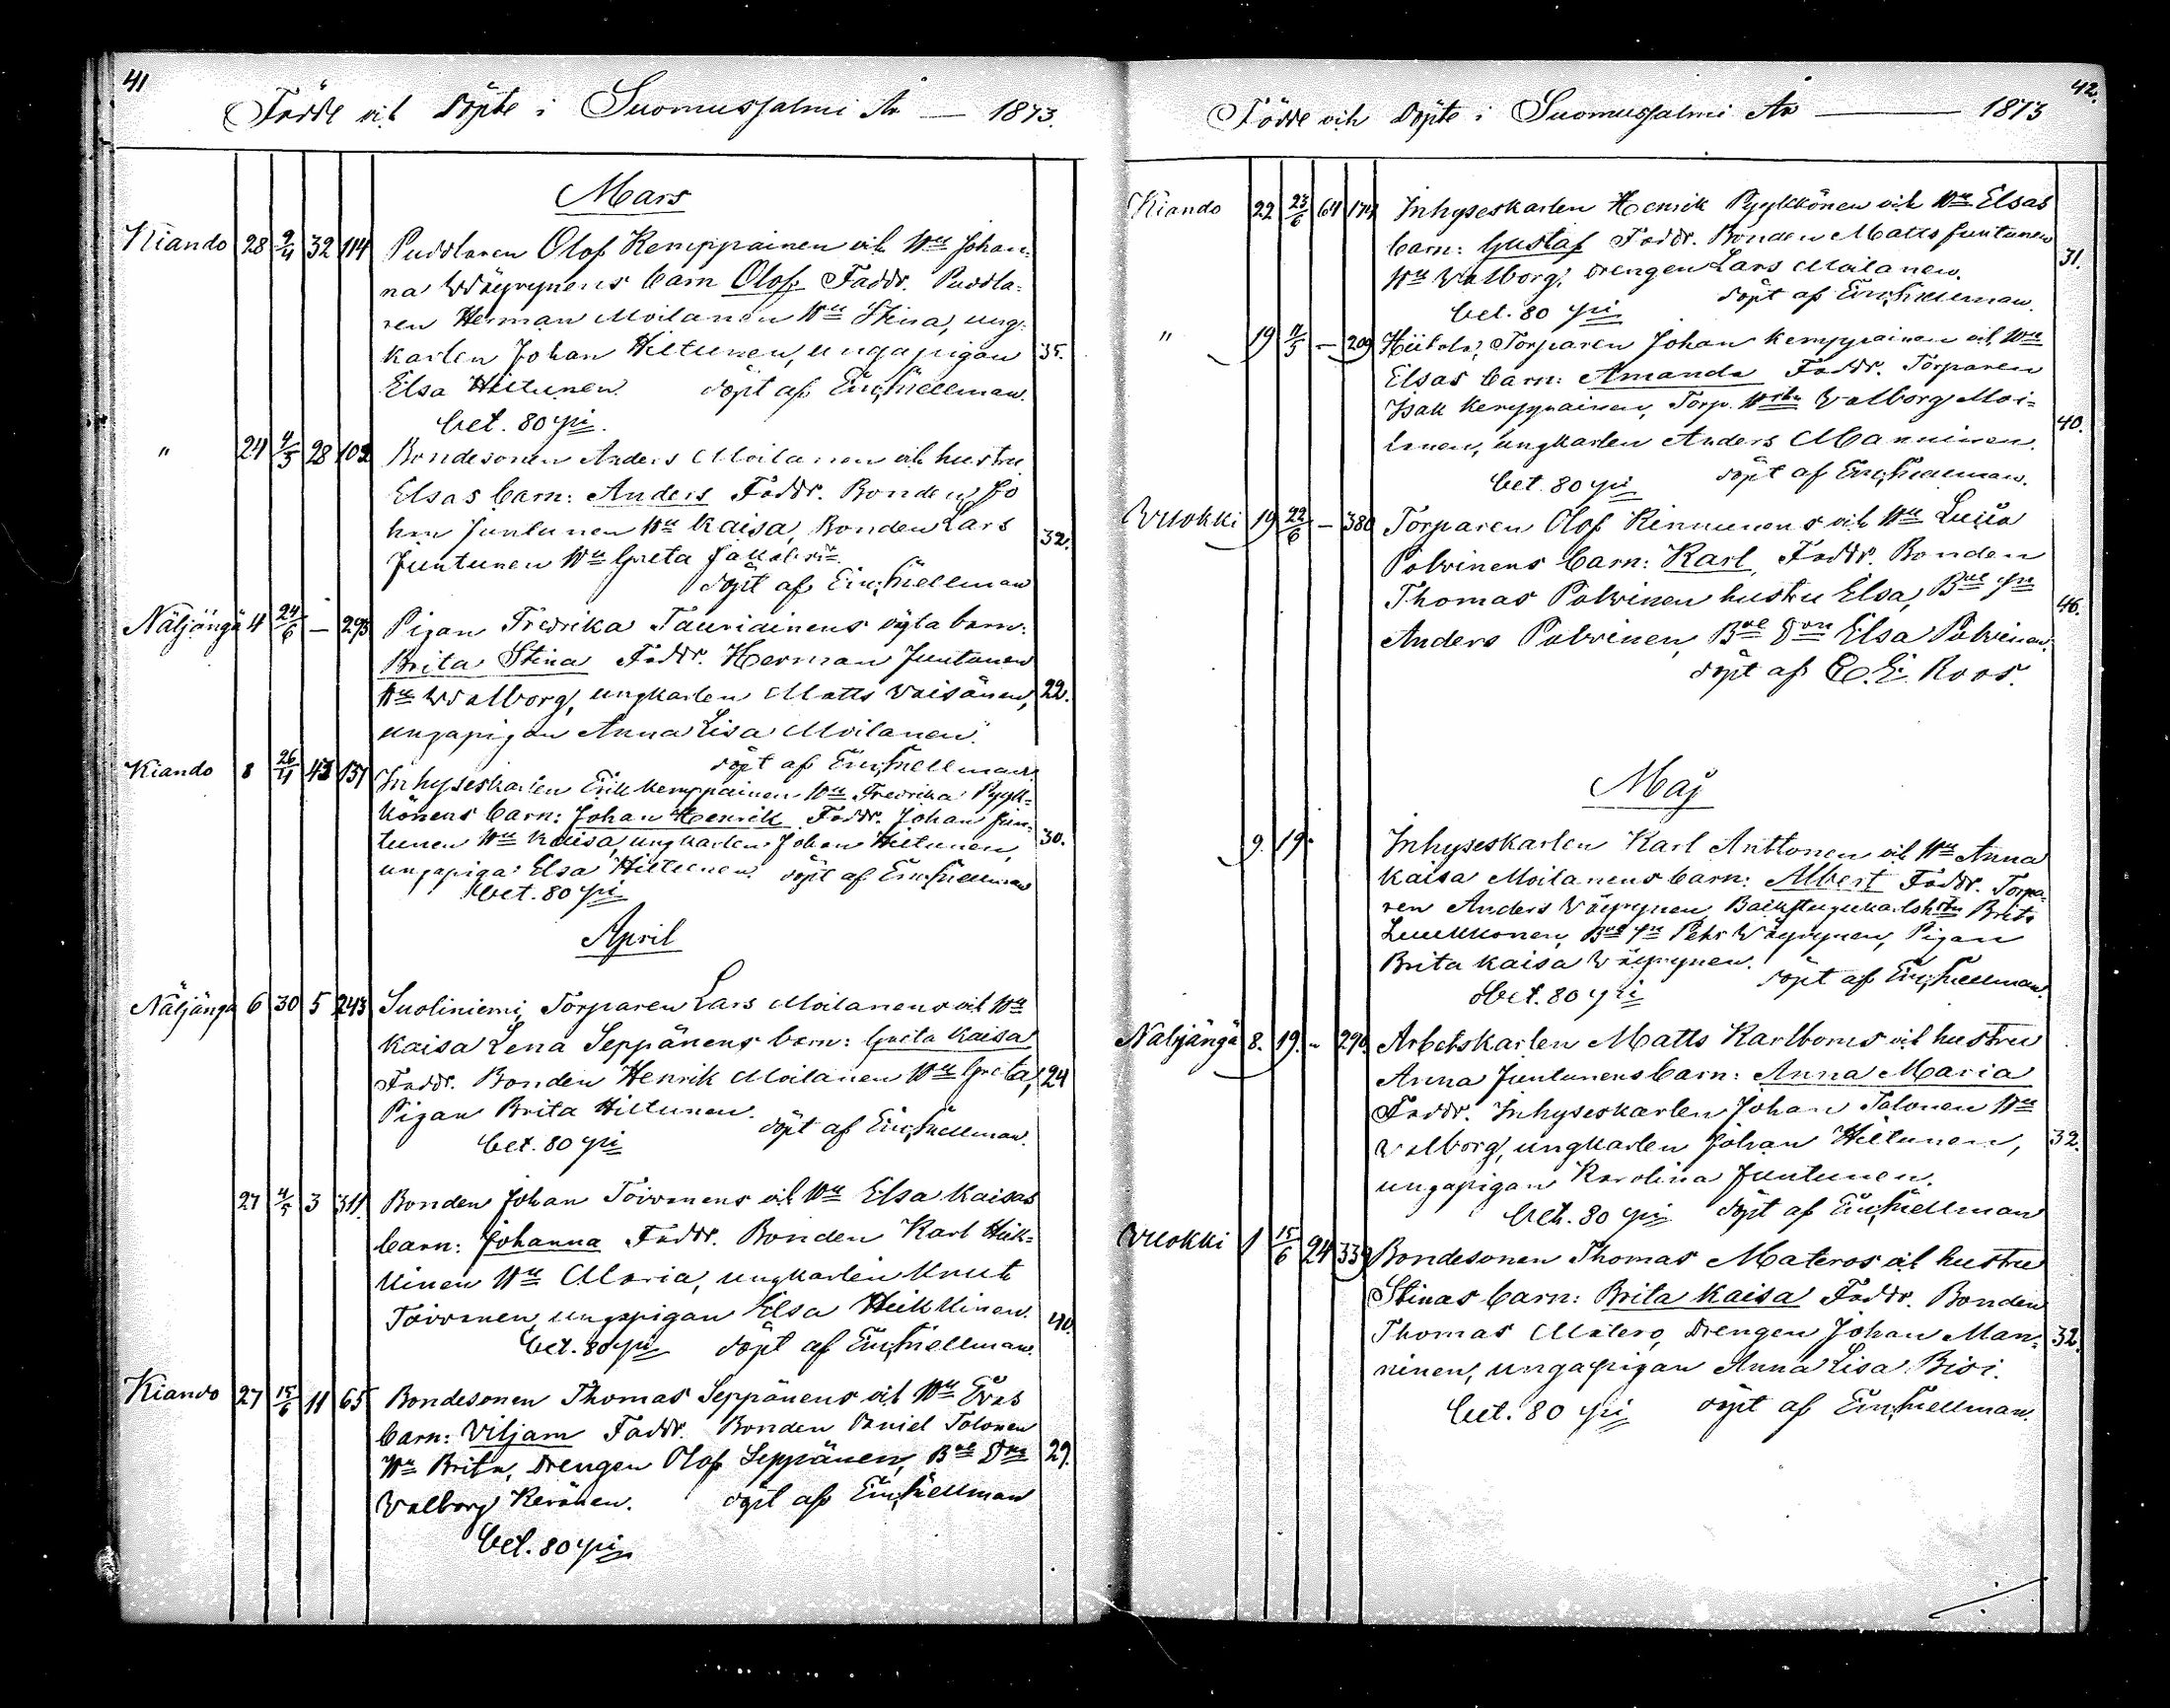 41
Födde och Döpte i Suomussalmi År — 1873.
Mars
Kiando 28 9/4 32 114 Puddlaren Olof Kemppainen och Hu Johan-
na Wäyrynens barn Olof. Faddr. Puddla-
ren Herman Moilanen Hu Stina, ung-
karlen Johan Hiltunen, ungapigan 35.
Elsa Hiltunen. döpt af Em. Snellman.
bet. 80 pi.
" 24 4/5 28 102 Bondesonen Anders Moilanen och hustru
Elsas barn: Anders Faddr. Bonden Jo
han Juntunen Hu Kaisa, Bonden Lars 32.
Juntunen Hu Greta
döpt af Em. Snellman
Näljängä 4 24/6 — 293 Pigan Fredrika Tauriainens oägta barn:
Brita Stina Faddr. Herman Juntunen
Hu Walborg, ungkarlen Matts Väisänen, 22.
ungapigan Anna Lisa Moilanen.
döpt af Em. Snellman.
Kiando 8 26/4 43 137 Inhyseskarlen Erik Kemppainen Hu Fredrika Pyyk-
könens barn: Johan Henrik Faddr. Johan Jun-
tunen Hu Kaisa, ungkarlen Johan Hiltunen, 30.
ungapiga: Elsa Hiltunen döpt af Em. Snellman
bet. 80 pi
April
Näljänga 6 30 5 243 Suoliniemi, Torparen Lars Moilanens och Hu
Kaisa Lena Seppänens barn: Greta Kaisa
Faddr. Bonden Henrik Moilanen Hu Greta, 24
Pigan Brita Hiltunen. döpt af Em. Snellman.
bet. 80 pi
27 4/5 3 311. Bonden Johan Toivanens och Hu Elsa Kaisas
barn: Johanna Faddr. Bonden Karl Heik-
kinen Hu Maria, ungkarlen Knut
Toivanen, ungapigan Elsa Heikkinen. 40.
bet. 80 pi döpt af Em. Snellman.
Kiando 27 15/6 11 65 Bondesonen Thomas Seppänens och Hu Evas
barn: Viljam Faddr. Bonden Daniel Tolonen
Hu Brita, Drengen Olof Seppänen, Bde Don 29.
Walborg Keränen. döpt af Em. Snellman
bet. 80 pi
42.
Födde och Döpte i Suomussalmi År — 1873
Kiando 22 23/6 64 174 Inhyseskarlen Henrik Pyykkönen och Hu Elsas
barn: Gustaf Faddr. Bonden Matts Juntunen 31.
Hu Walborg, Drengen Lars Moilanen.
bet. 80 pi döpt af Em. Snellman.
" 19 11/5 — 209 Hiitola, Torparen Johan Kemppainen och Hu
Elsas barn: Amanda Faddr. Torparen
Isak Kemppainen, Torp. Hstu Walborg Moi-
lanen, ungkarlen Anders Manninen. 40.
bet. 80 pi döpt af Em. Snellman.
Wuokki 19 22/6 — 380 Torparen Olof Kinnunens och Hu Lucia
Polvinens barn: Karl, Faddr. Bonden
Thomas Polvinen hustru Elsa, Bde Sn 46.
Anders Polvinen, Bde Don Elsa Polvinen.
döpt af C. E. Roos.
Maj
9. 19. Inhyseskarlen Karl Anttonen och Hu Anna
Kaisa Moilanens barn: Albert Faddr. Torpa-
ren Anders Wäyrynen, Backstugukarlshstu Brita
Luukkonen, Bde Sn Pehr Wäyrynen, Pigan
Brita Kaisa Wäyrynen.
bet. 80 pi döpt af Em. Snellman.
Näljängä 8. 19. " 290 Arbetskarlen Matts Karlboms och hustru
Anna Juntunens barn: Anna Maria
Faddr. Inhyseskarlen Johan Tolonen Hu
Walborg, ungkarlen Johan Hiltunen, 32.
ungapigan Karolina Juntunen.
bet. 80 pi döpt af Em. Snellman
Wuokki 1 15/6 24 339 Bondesonen Thomas Materos och hustru
Stinas barn: Brita Kaisa Faddr. Bonden
Thomas Matero, Drengen Johan Man- 32.
ninen, ungapigan Anna Lisa
bet. 80 pi döpt af Em. Snellman.